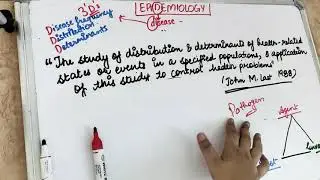 3 D's
EPIDEMIOLOGY
Disease frequency
Distribution
Determinants
disease
"The study of distribution & determinants of health-related
states or events in a specified populations, & application
of this study to control health problems"
(John M. Last 1988)
Pathogen
Agent